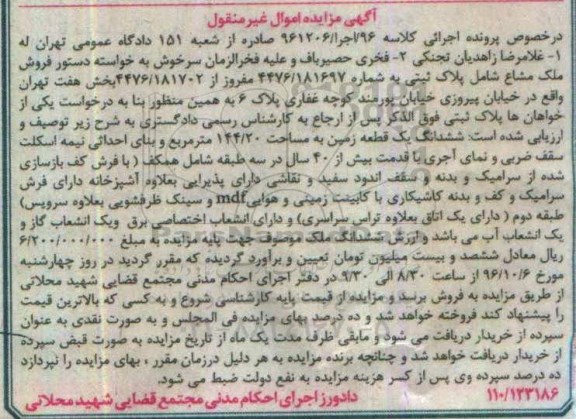 آگهی مزایده اموال غیر منقول
درخصوص پرونده اجرائی کلاسه ۹۶/اجرا/۹۶۱۲۰۶ صادره از شعبه ۱۵۱ دادگاه عمومی تهران له
۱- غلامرضا زاهدیان تجنکی ۲- فخری حصیرباف و علیه فخرالزمان سرخوش به خواسته دستور فروش
ملک مشاع شامل پلاک ثبتی به شماره ۴۴۷۶/۱۸۱۶۹۷ مفروز از ۴۴۷۶/۱۸۱۷۰۲بخش هفت تهران
واقع در خیابان پیروزی خیابان پورمند کوچه غفاری پلاک ۶ به همین منظور بنا به درخواست یکی از
خواهان ها پلاک ثبتی فوق الذکر پس از ارجاع به کارشناس رسمی دادگستری به شرح زیر توصیف و
ارزیابی شده است: ششدانگ یک قطعه زمین به مساحت ۱۴۴/۲۰ مترمربع و بنای احداثی نیمه اسکلت
سقف ضربی و نمای آجری با قدمت بیش از ۴۰ سال در سه طبقه شامل همکف ( با فرش کف بازسازی
شده از سرامیک و بدنه و سقف اندود سفید و نقاشی دارای پذیرایی بعلاوه آشپزخانه دارای فرش
سرامیک و کف و بدنه کاشیکاری با کابینت زمینی و هوایی mdf و سینک ظرفشویی بعلاوه سرویس)
طبقه دوم ( دارای یک اتاق بعلاوه تراس سراسری) و دارای انشعاب اختصاصی برق ویک انشعاب گاز و
یک انشعاب آب می باشد و ارزش ششدانگ ملک موصوف جهت پایه مزایده به مبلغ ۶/۲۰۰/۰۰۰/۰۰۰
ریال معادل ششصد و بیست میلیون تومان تعیین و برآورد گردیده که مقرر گردید در روز چهارشنبه
مورخ ۹۶/۱۰/۶ از ساعت ۸/۳۰ الی ۹/۳۰ در دفتر اجرای احکام مدنی مجتمع قضایی شهید محلاتی
از طریق مزایده به فروش برسد و مزایده از قیمت پایه کارشناسی شروع و به کسی که بالاترین قیمت
را پیشنهاد کند فروخته خواهد شد و ده درصد بهای مزایده فی المجلس و به صورت نقدی به عنوان
سپرده از خریدار دریافت می شود و مابقی ظرف مدت یک ماه از تاریخ مزایده به صورت قبض سپرده
از خریدار دریافت خواهد شد و چنانچه برنده مزایده به هر دلیل درزمان مقرر ، بهای مزایده را نپردازد
ده درصد سپرده وی پس از کسر هزینه مزایده به نفع دولت ضبط می شود.
۱۱۰/۱۲۳۱۸۶ دادورز اجرای احکام مدنی مجتمع قضایی شهید محلاتی